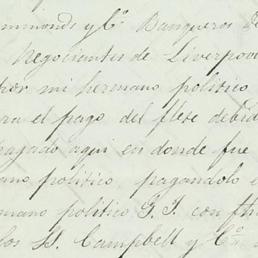 mmonds y Cª. Banqueros de
Negociantes de Liverpoo
por mi hermano politico
ra el pago del flete debid
pagado aqui en donde fue
ano politico, pagandolo e
mano politico G. T. con fh
los SS. Campbell y Cª.